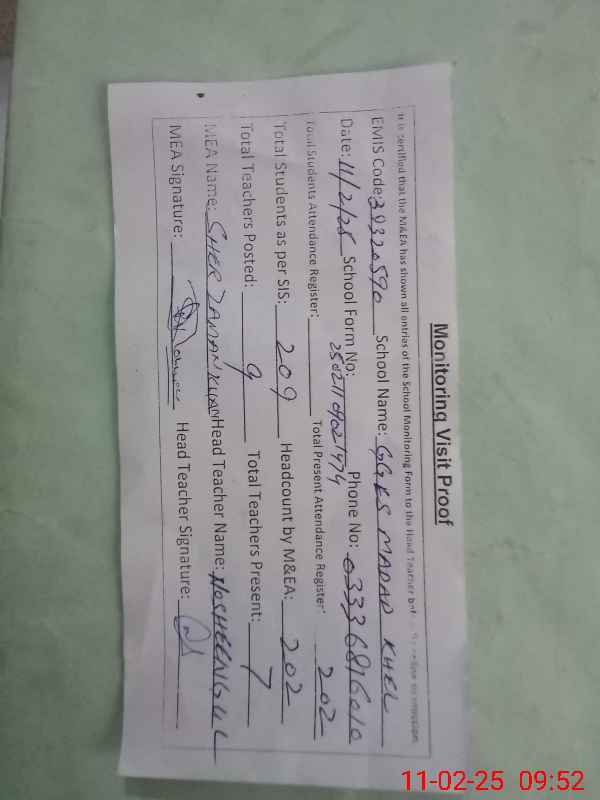 Monitoring Visit Proof
It is certified that the M&EA has shown all entries of the School Monitoring Form to the Head Teacher
EMIS Code: 39320590 School Name: GGES MADAD KHEL
Date: 11/2/25 School Form No: 25021109021974 Phone No: 03336816010
Total Students Attendance Register: Total Present Attendance Register: 202
Total Students as per SIS: 209 Headcount by M&EA: 202
Total Teachers Posted: 9 Total Teachers Present: 7
MEA Name: SHER ZAMAN KHAN Head Teacher Name: NOSHEEN GUL
MEA Signature: Head Teacher Signature:
11-02-25 09:52